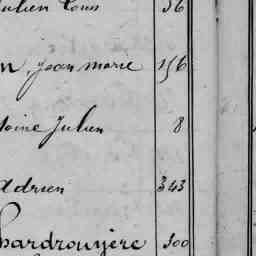 ulien Louis 56
n, Jean marie 156
toine Julien 8
Adrien 343
hardrouyère 300